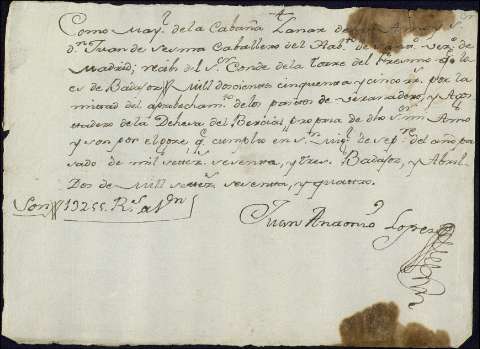 Como May.l de la Cabaña Lanar de
d.n Juan de Sesma Caballero del Rab.to de vez.o de
Madrid; recib del S.or Conde de la Torre del fresno q.e lo
es de Badajoz Mill doscientos cinquenta y cinco rr.s por la
mitad del aprobecham.to de los pastos de veranadero, y Agos
tadero de la Dehesa del propria de dho S.or mi Amo
y son por el q.e cumplio en S.n Mig.l de sep.re del año pa
sado de mil setez.s setenta, y tres. Badajoz, y Abril
Dos de Mill setez.s setenta, y quattro.
Son 1255. R.s v.n
Juan Antonio Lopez